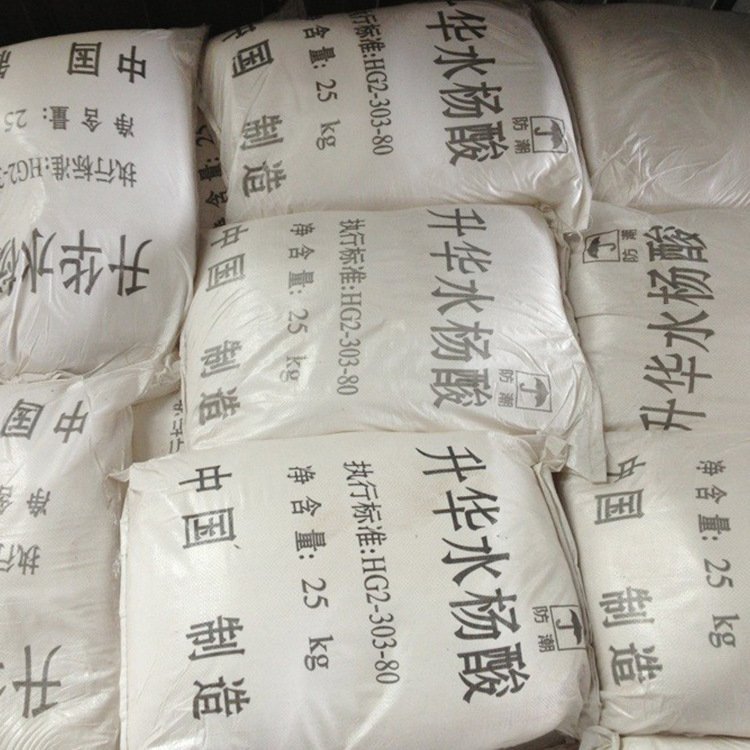 中国
净含量: 25
执行标准:HG2-3
升华水杨
升华水杨酸
防潮
执行标准:HG2-303-80
净含量: 25 kg
中国 制造
升华水杨酸
防潮
执行标准:HG2-303-80
净含量: 25 kg
中国 制造
升华水杨酸
防潮
中国
净含
执行
升
升华水杨酸
防潮
执行标准:HG2-303-80
净含量: 25 kg
中国 制造
净含量: 25 kg
中国 制造